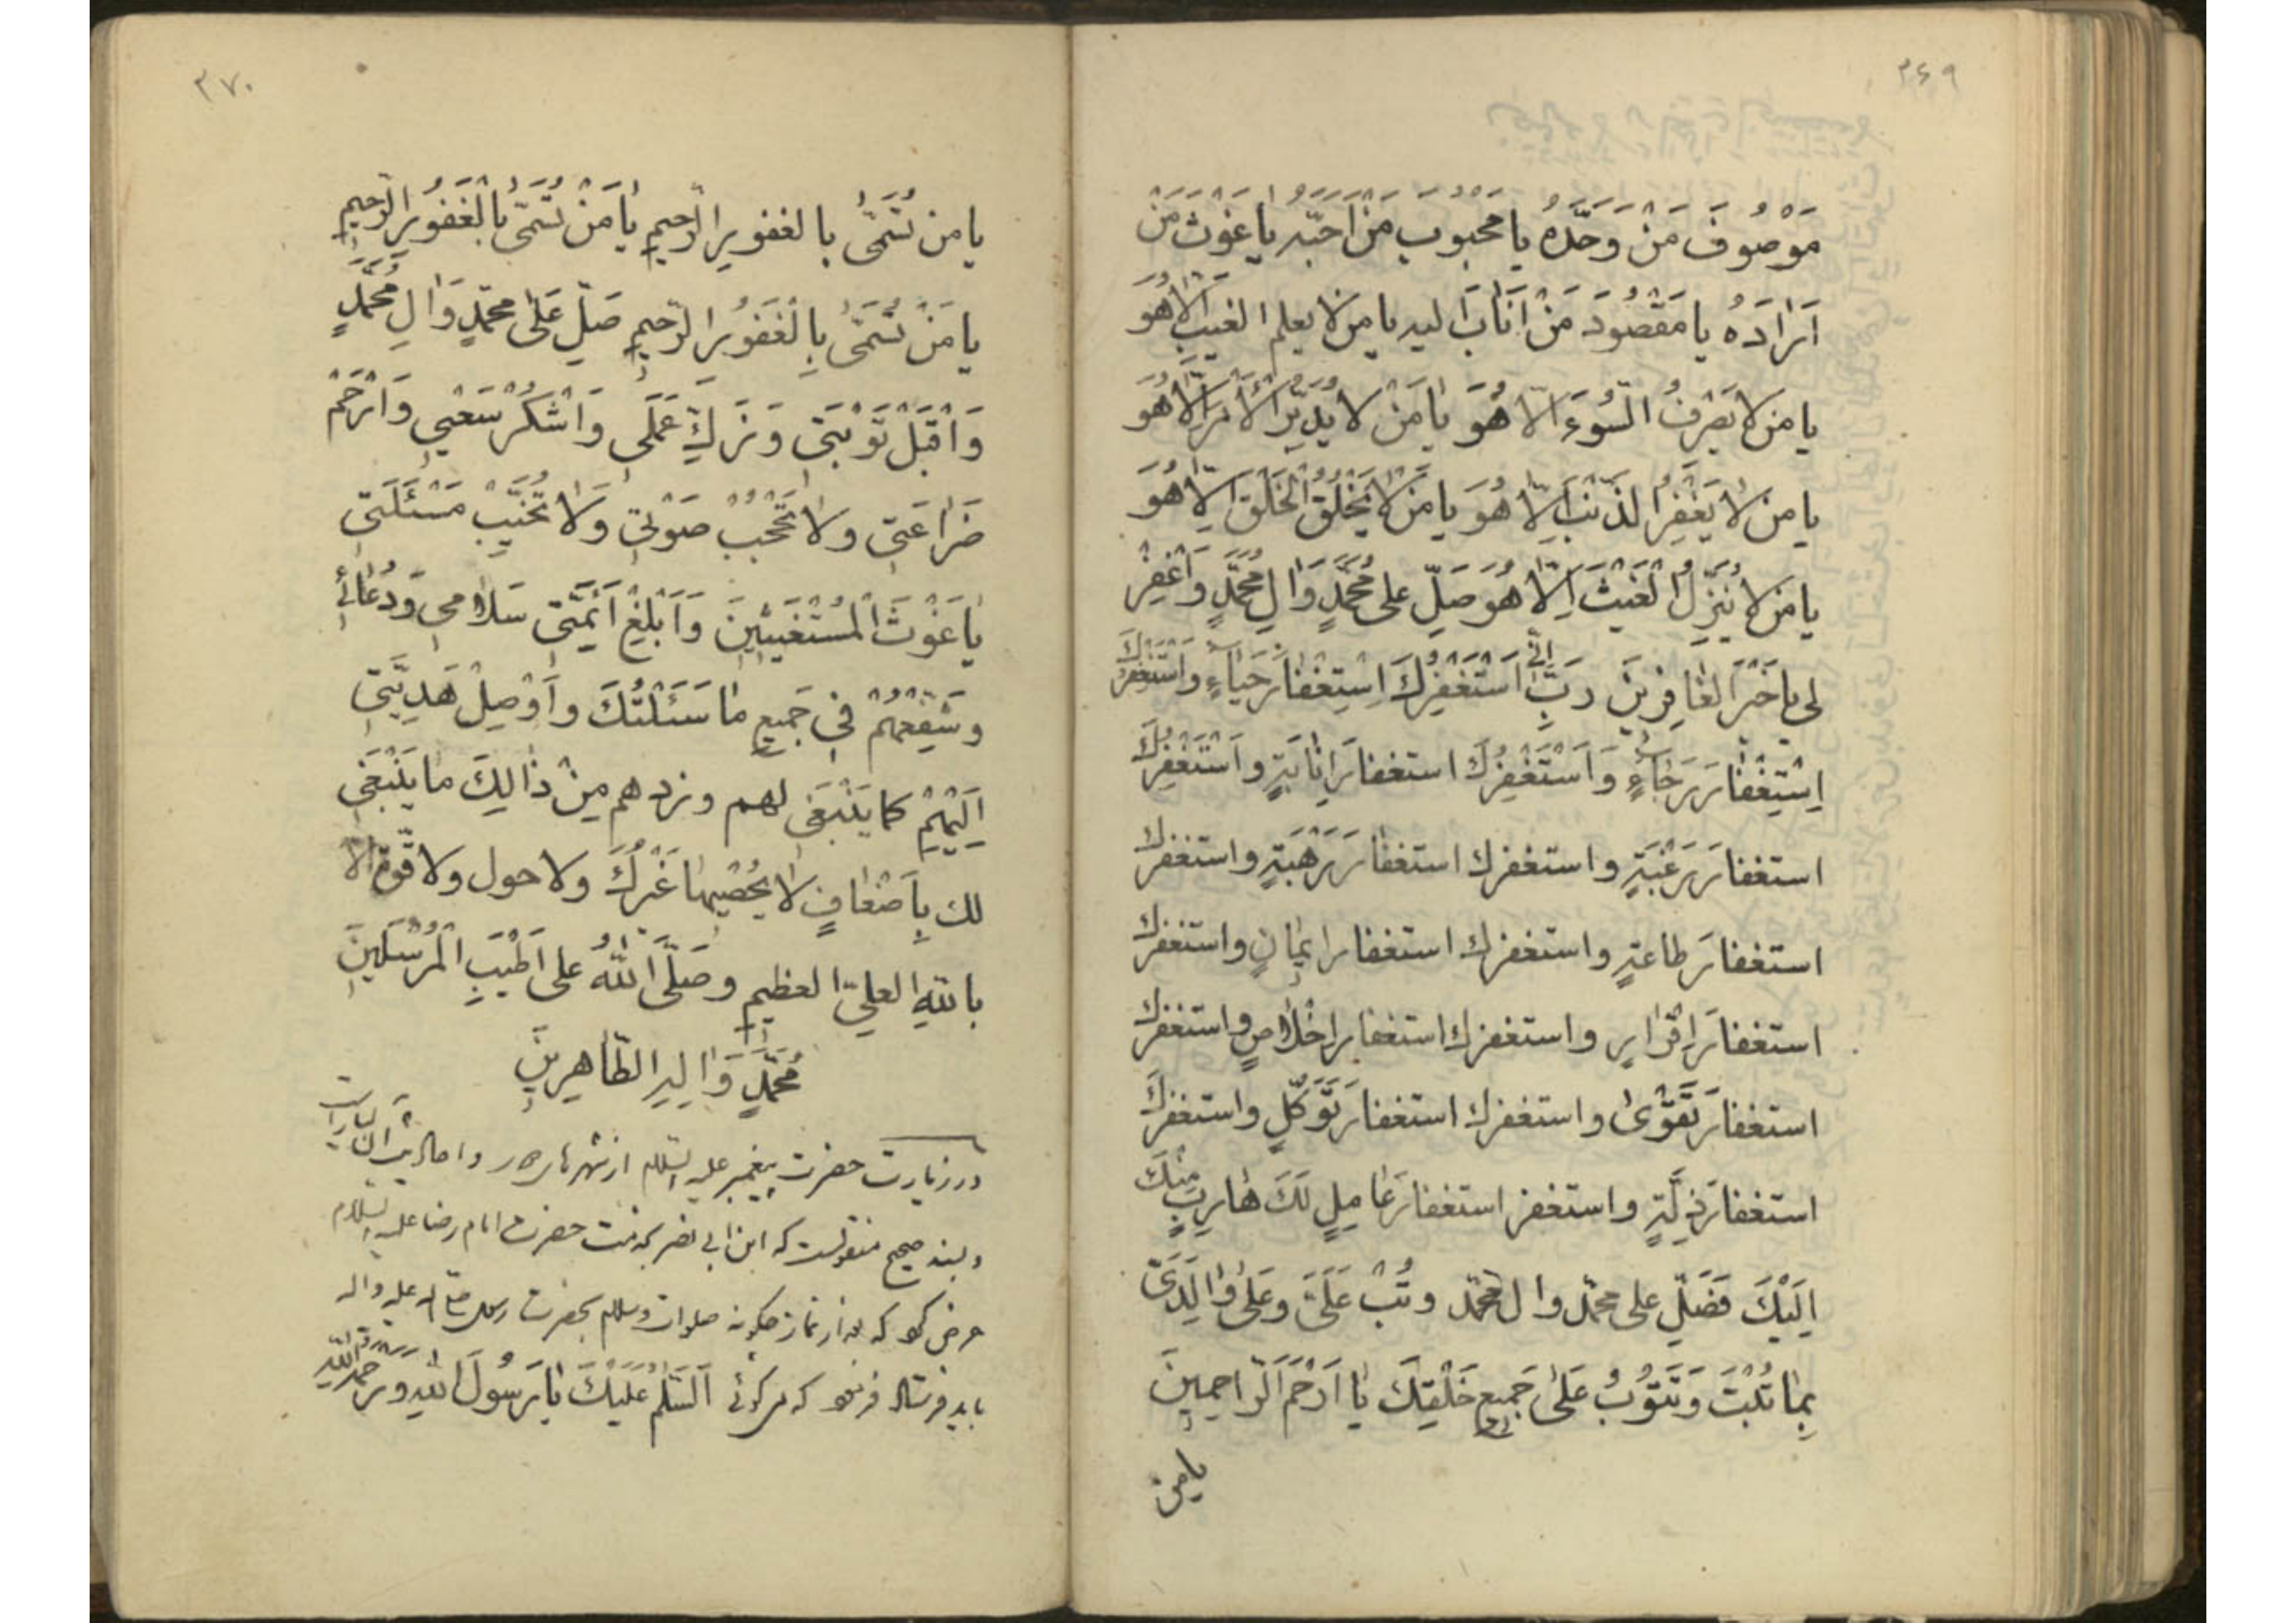 ۳۶۹
مَوْصُوفَ مَنْ وَحَّدَهُ يا مَحْبُوبَ مَنْ اَحَبَّهُ يا غَوْثَ مَنْ
اَرَادَهُ يا مَقْصُودَ مَنْ اَنَابَ اليه يا من لا يعلم الغيبَ الّا هُوَ
يا من لا يَصْرِفُ السُّوءَ الّا هُوَ يا مَنْ لا يُدَبِّرُ الْأَمْرَ اِلّا هُوَ
يا من لا يَغْفِرُ الذَّنْبَ اِلّا هُوَ يا مَنْ لا يَخْلُقُ الْخَلْقَ اِلّا هُوَ
يا من لا يُنَزِّلُ الْغَيْثَ اِلّا هُوَ صَلِّ على مُحَمَّدٍ وَالِ مُحَمَّدٍ وَاغْفِرْ
لى يا خَيْرَ الغافِرينَ رَبِّ اِنّى اَسْتَغْفِرُكَ اِسْتِغْفارَ حَياءٍ وَاَسْتَغْفِرُكَ
اِسْتِغْفارَ رَجاءٍ وَاَسْتَغْفِرُكَ استغفارَ اِنابَةٍ واَسْتَغْفِرُكَ
استغفارَ رَغْبَةٍ واستغفرك استغفارَ رَهْبَةٍ واستغفرك
استغفارَ طاعةٍ واستغفرك استغفار ايمانٍ واستغفرك
استغفارَ اِقْرارٍ واستغفرك استغفار اخْلاصٍ واستغفرك
استغفارَ تَقْوىٰ واستغفرك استغفارَ تَوَكُّلٍ واستغفرك
استغفارَ ذِلَّةٍ واستغفر استغفارَ عامِلٍ لَكَ هارِبٍ مِنْكَ
اِلَيْكَ فَصَلِّ على محمّد وال محمّد وتُبْ عَلَىَّ وعَلىٰ والِدَىَّ
بِما تُبْتَ وَتَتُوبُ عَلىٰ جَميعِ خَلْقِكَ يا اَرْحَمَ الرّاحِمينَ
يا من
۳۷۰
يا من تُسَمّىٰ بالغفورِ الرّحيمِ يا مَنْ تُسَمّىٰ بِالْغَفُورِ الرّحيمِ
يا مَنْ تُسَمّىٰ بِالْغَفُورِ الرّحيمِ صَلِّ عَلىٰ محمّدٍ وَالِ مُحَمَّدٍ
وَاقْبَلْ تَوْبَتى وَزَكِّ عَمَلى وَاشْكُرْ سَعْيى وَارْحَمْ
ضَراعَتى ولا تَحْجُبْ صَوْتى وَلا تُخَيِّبْ مَسْئَلَتى
يا غَوْثَ الْمُسْتَغيثينَ وَاَبْلِغْ اَئِمَّتى سَلامى وَدُعائى
وشَفِّعْهُمْ فى جَميعِ ما سَئَلْتُكَ واَوْصِلْ هَدِيَّتى
اِلَيْهِمْ كما يَنْبَغى لهم وزدهم مِنْ ذالِكَ ما يَنْبَغى
لك بِاَضْعافٍ لا يُحْصيها غَيْرُكَ ولا حول ولا قُوّة الّا
باللهِ العلىِّ العظيمِ وصَلَّى اللهُ على اَطْيَبِ الْمُرْسَلينَ
مُحَمَّدٍ وَالِهِ الطّاهِرينَ
در زيارت حضرت پيغمبر عليه السّلام از شهرهاى دور
وبسند صحيح منقولست كه ابن ابى نصر بخدمت حضرت امام رضا عليه السّلام
عرض كرد كه بعد از نماز چگونه صلوات وسلام بحضرت رسول صلّى الله عليه واله
بايد فرستاد فرمود كه ميگوئى اَلسَّلامُ عَلَيْكَ يا رَسُولَ اللهِ وَرَحْمَةُ اللهِ